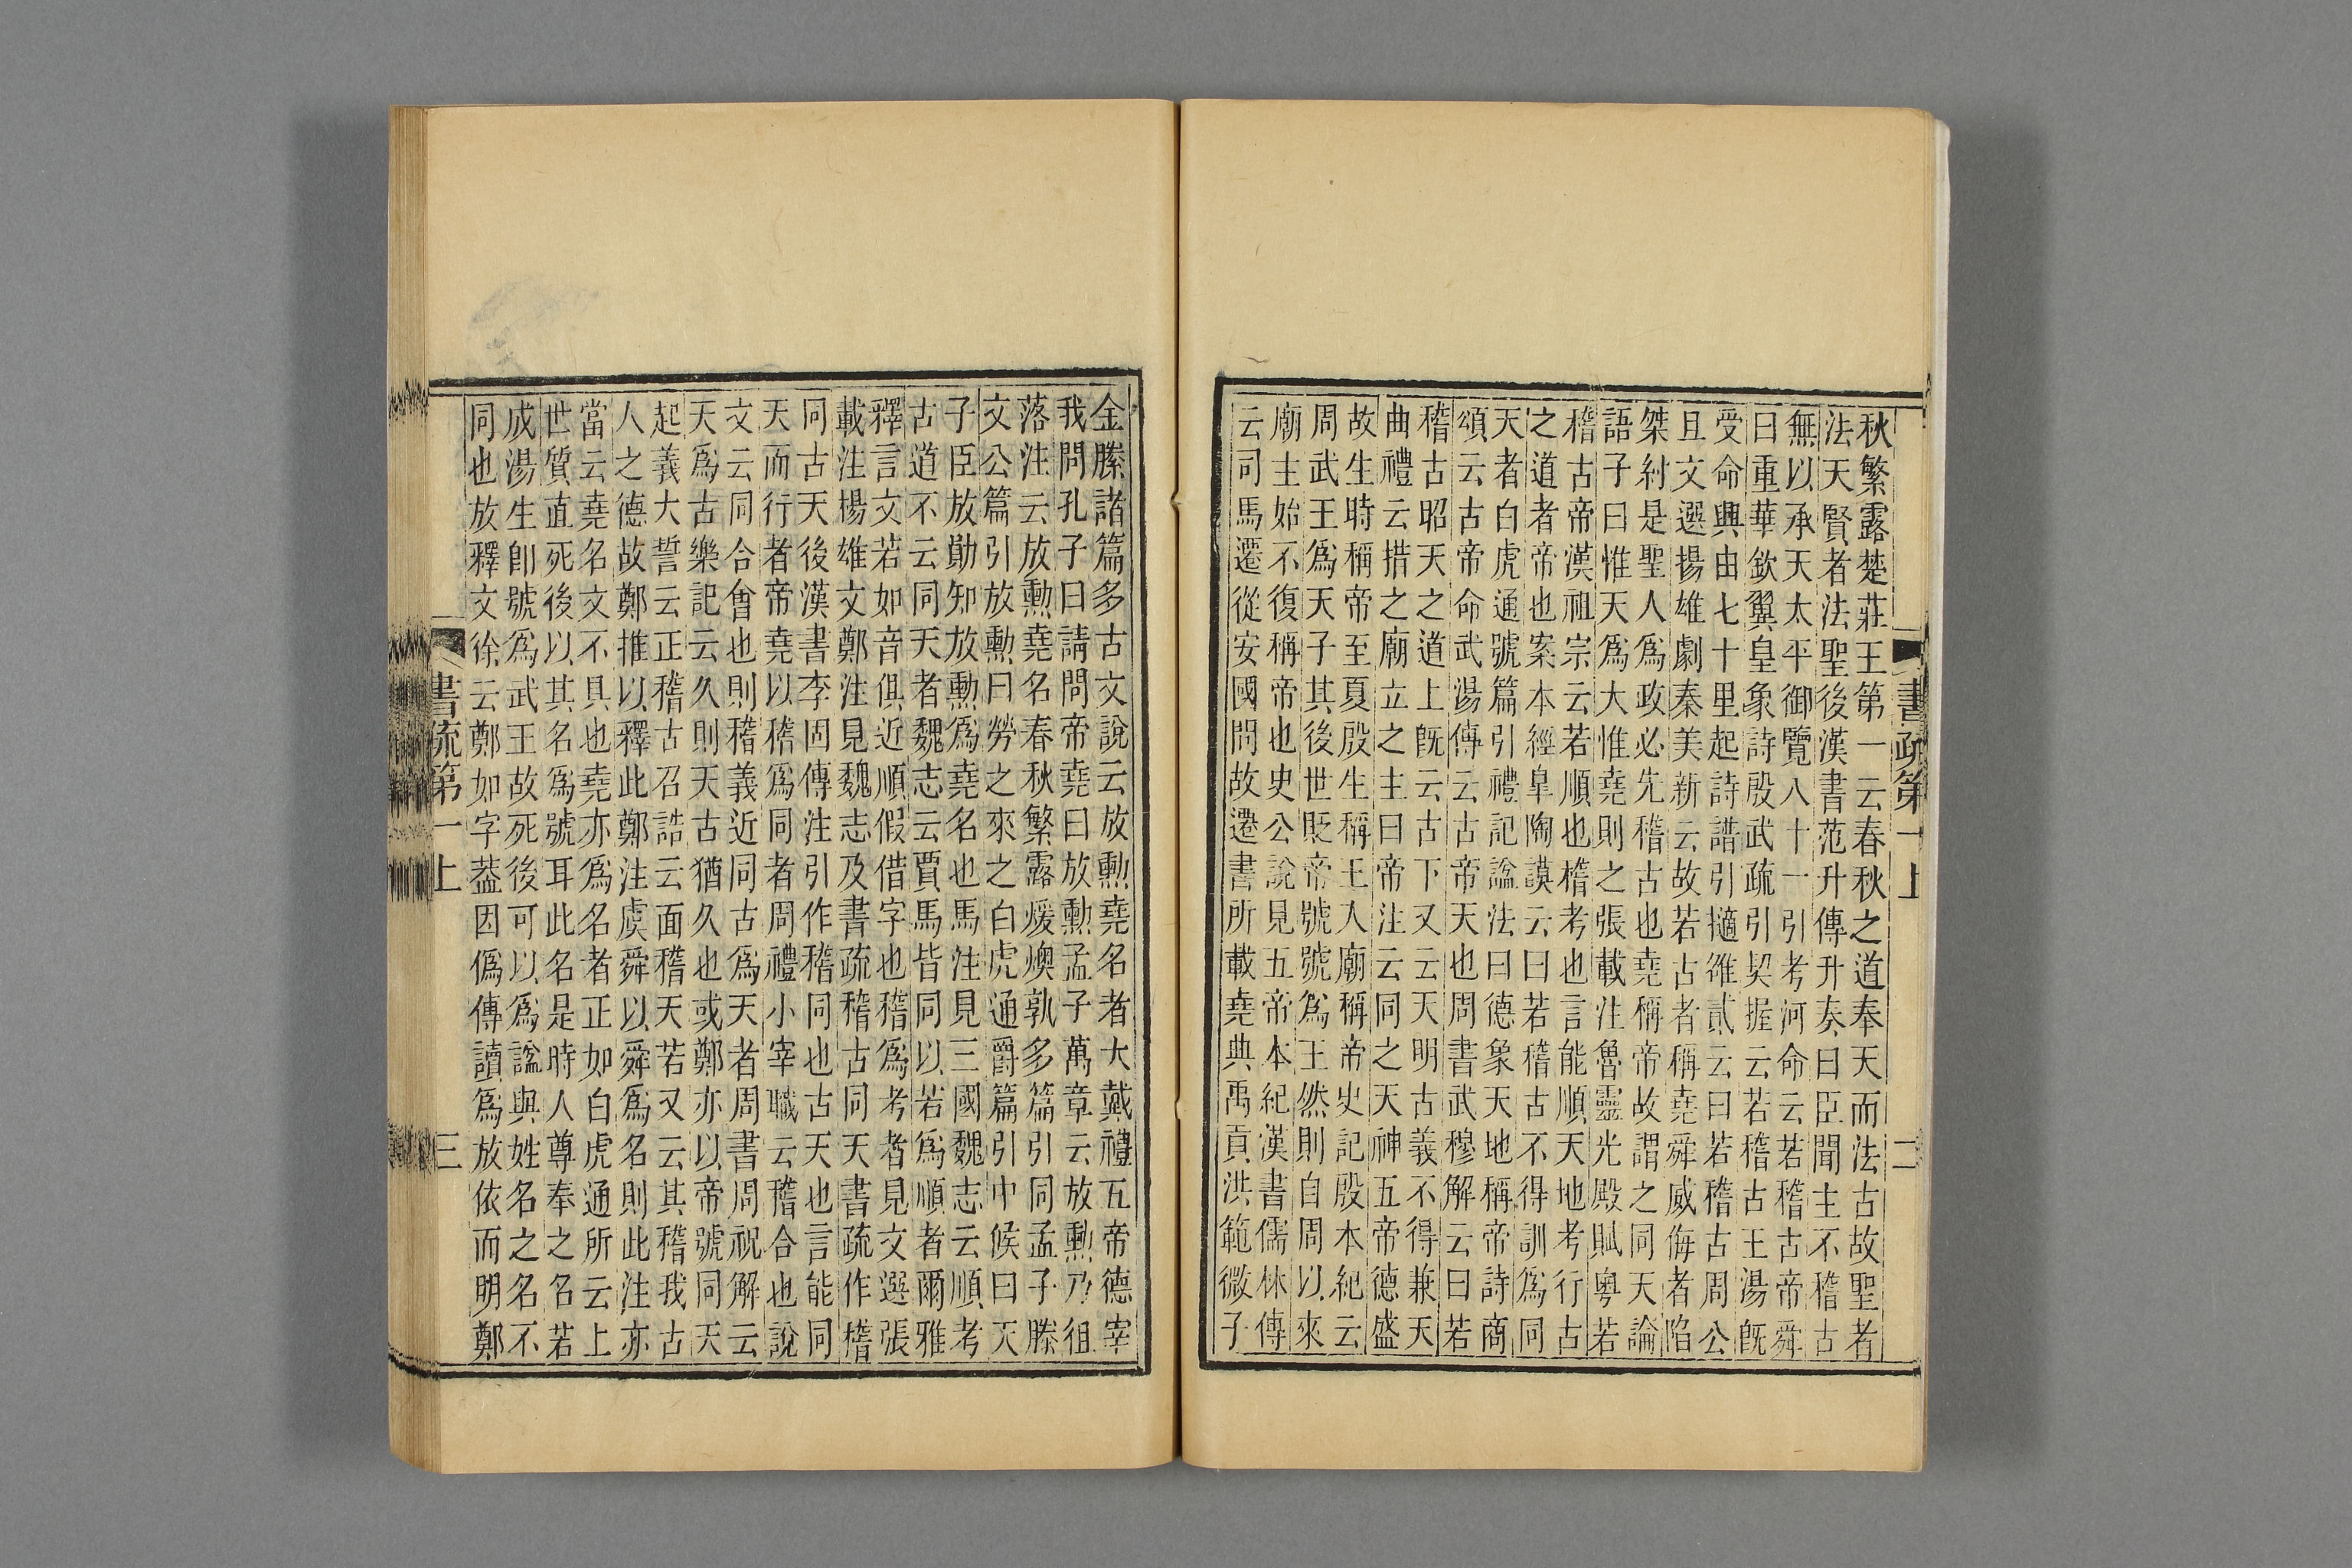 秋繁露楚莊王第一云春秋之道奉天而法古故聖者
法天賢者法聖後漢書范升傳升奏曰臣聞主不稽古
無以承天太平御覽八十一引考河命云若稽古帝舜
曰重華欽翼皇象詩殷武疏引契握云若稽古王湯旣
受命興由七十里起詩譜引擿雒貳云曰若稽古周公
且文選揚雄劇秦美新云故若古者稱堯舜威侮者陷
桀紂是聖人爲政必先稽古也堯稱帝故謂之同天論
語子曰惟天爲大惟堯則之張載注魯靈光殿賦粤若
稽古帝漢祖宗云若順也稽考也言能順天地考行古
之道者帝也案本經皐陶謨云曰若稽古不得訓爲同
天者白虎通號篇引禮記謚法曰德象天地稱帝詩商
頌云古帝命武湯傳云古帝天也周書武穆解云曰若
稽古昭天之道上旣云古下又云天明古義不得兼天
曲禮云措之廟立之主曰帝注云同之天神五帝德盛
故生時稱帝至夏殷生稱王人廟稱帝史記殷本紀云
周武王爲天子其後世貶帝號號爲王然則自周以來
廟主始不復稱帝也史公說見五帝本紀漢書儒林傳
云司馬遷從安國問故遷書所載堯典禹貢洪範微子
書疏第一上
二
金縢諸篇多古文說云放勳堯名者大戴禮五帝德宰
我問孔子曰請問帝堯曰放勳孟子萬章云放勳乃徂
落注云放勳堯名春秋繁露煖燠孰多篇引同孟子滕
文公篇引放勳曰勞之來之白虎通爵篇引中候曰天
子臣放勛知放勳爲堯名也馬注見三國魏志云順考
古道不云同天者魏志云賈馬皆同以若爲順者爾雅
釋言文若如音俱近順假借字也稽爲考者見文選張
載注楊雄文鄭注見魏志及書疏稽古同天書疏作稽
同古天後漢書李固傳注引作稽同也古天也言能同
天而行者帝堯以稽爲同者周禮小宰職云稽合也說
文云同合會也則稽義近同古爲天者周書周祝解云
天爲古樂記云久則天古猶久也或鄭亦以帝號同天
起義大誓云正稽古召誥云面稽天若又云其稽我古
人之德故鄭推以釋此鄭注虞舜以舜爲名則此注亦
當云堯名文不具也堯亦爲名者正如白虎通所云上
世質直死後以其名爲號耳此名是時人尊奉之名若
成湯生卽號爲武王故死後可以爲謚與姓名之名不
同也放釋文徐云鄭如字葢因僞傳讀爲放依而明鄭
書疏第一上
三